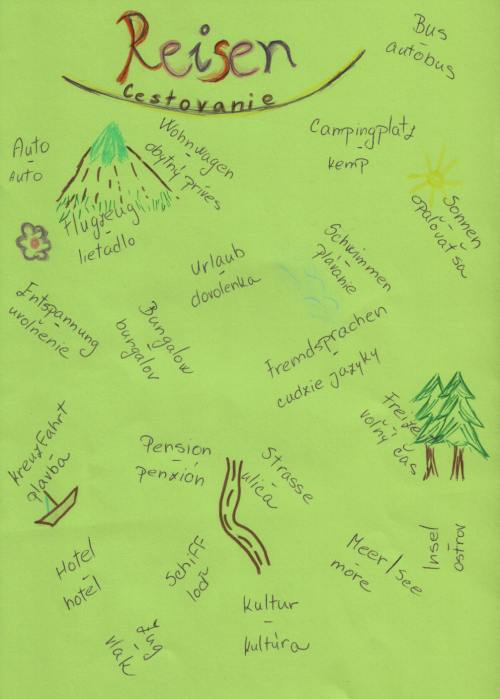 Reisen
Cestovanie
Bus
-
autobus
Auto
-
Auto
Wohnwagen
-
obytný príves
Campingplatz
-
kemp
Sonnen
-
opaľovať sa
Flugzeug
-
lietadlo
Urlaub
-
dovolenka
Schwimmen
-
plávanie
Entspannung
-
uvoľnenie
Bungalow
-
bungalov
Fremdsprachen
-
cudzie jazyky
Freizei
-
voľný čas
Kreuzfahrt
-
plavba
Pension
-
penzión
Strasse
-
ulica
Hotel
-
hotel
Schiff
-
loď
Meer/See
-
more
Insel
-
ostrov
Kultur
-
kultúra
Zug
-
vlak